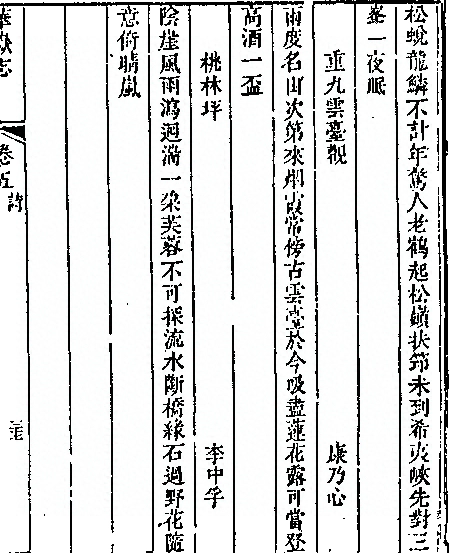 松蛻龍鱗不計年驚人老鶴起松巔扶笻未到希夷峽先對三
峯一夜眠
重九雲臺觀 康乃心
兩度名山次第來烟霞常傍古雲臺於今吸盡蓮花露可當登
高酒一盃
桃林坪 李中孚
陰崖風雨瀉迴湍一朶芙蓉不可探流水斷橋綠石過野花隨
意倚晴嵐
華嶽志 卷五 詩 三